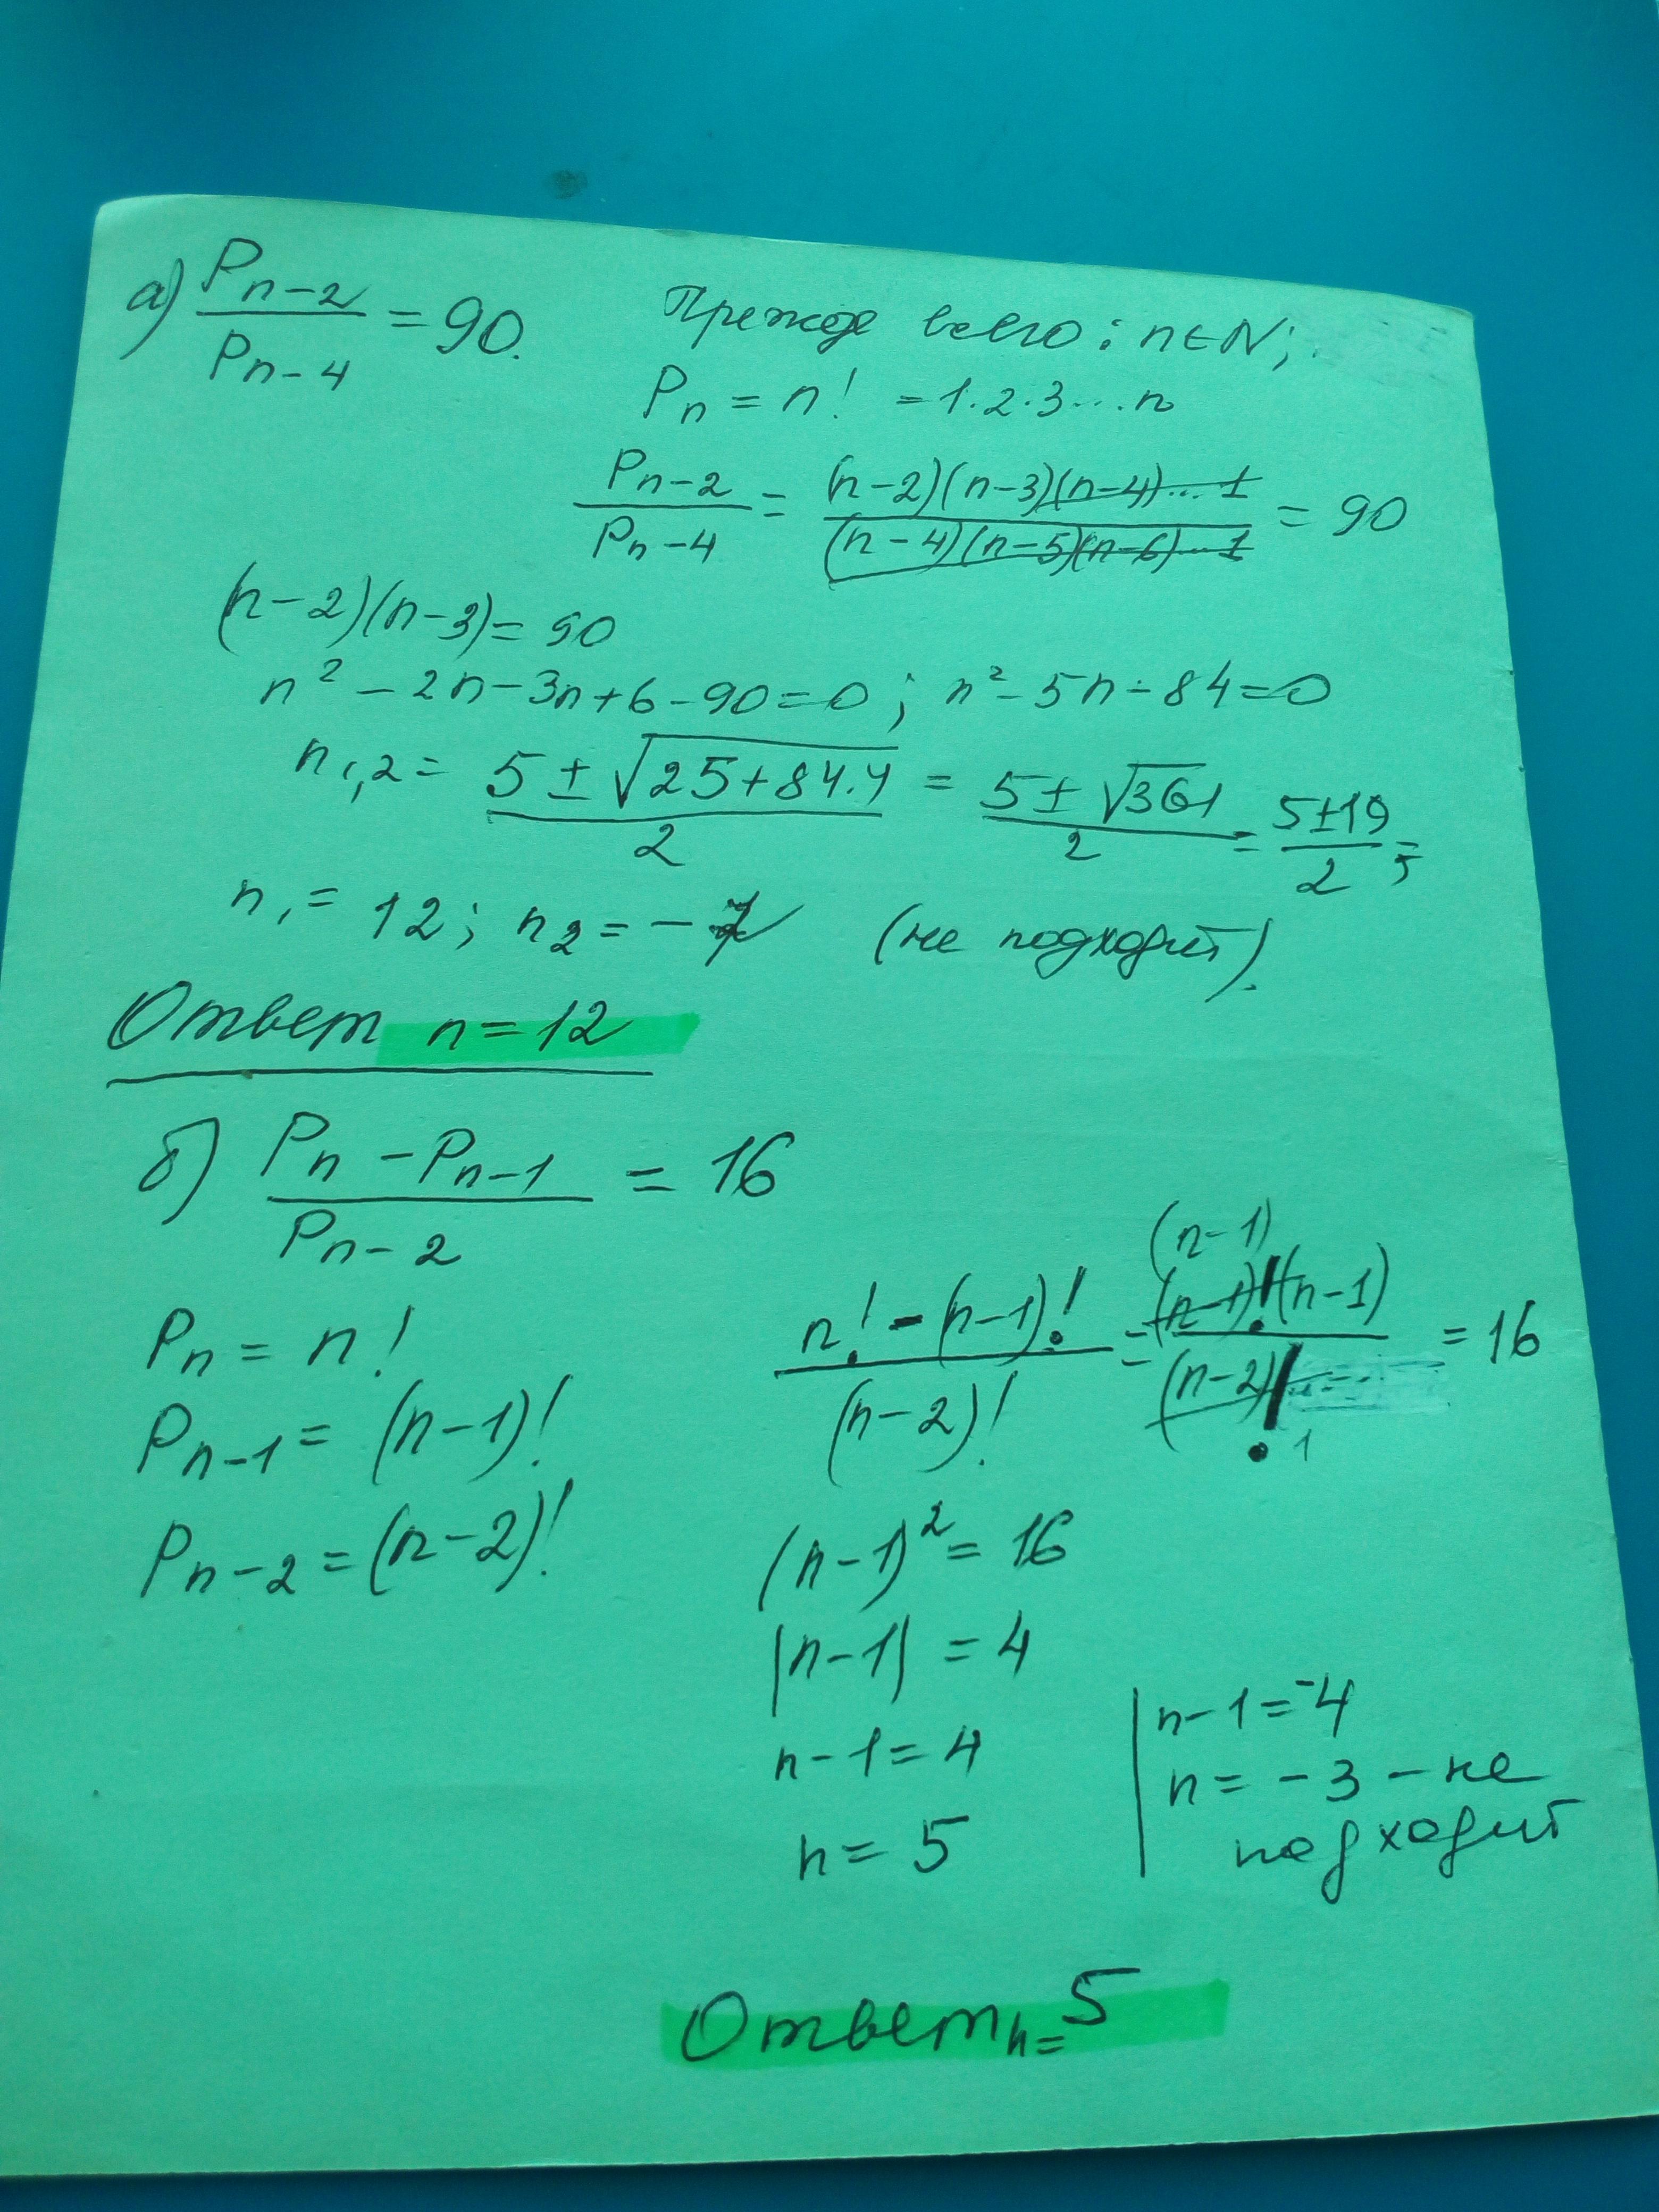 а) Pn-2 / Pn-4 = 90. Прежде всего: n∈N;
Pn = n! = 1·2·3...n
Pn-2 / Pn-4 = (n-2)(n-3)(n-4)...1 / (n-4)(n-5)(n-6)...1 = 90
(n-2)(n-3) = 90
n² - 2n - 3n + 6 - 90 = 0; n² - 5n - 84 = 0
n1,2 = 5 ± √25+84·4 / 2 = 5 ± √361 / 2 = 5±19 / 2;
n1 = 12; n2 = -7 (не подходит).
Ответ n = 12
б) Pn - Pn-1 / Pn-2 = 16
Pn = n!
Pn-1 = (n-1)!
Pn-2 = (n-2)!
n! - (n-1)! / (n-2)! = (n-1) (n-1)! (n-1) / (n-2)! 1 = 16
(n-1)² = 16
|n-1| = 4
n-1 = 4
n = 5
n-1 = -4
n = -3 - не
подходит
Ответ n = 5